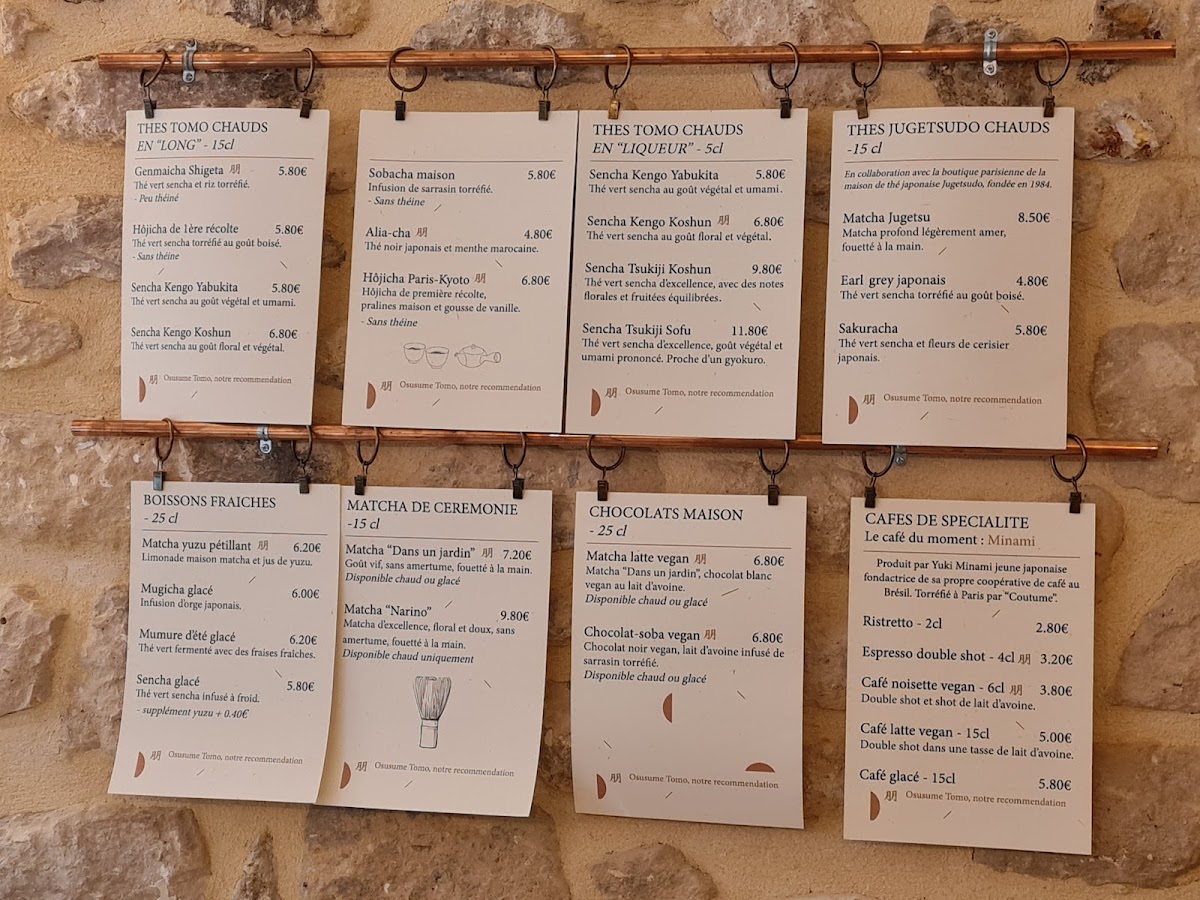 THES TOMO CHAUDS
EN “LONG” - 15cl
Genmaicha Shigeta 朋 5.80€
Thé vert sencha et riz torréfié.
- Peu théiné
Hôjicha de 1ère récolte 5.80€
Thé vert sencha torréfié au goût boisé.
- Sans théine
Sencha Kengo Yabukita 5.80€
Thé vert sencha au goût végétal et umami.
Sencha Kengo Koshun 6.80€
Thé vert sencha au goût floral et végétal.
朋 Osusume Tomo, notre recommendation
Sobacha maison 5.80€
Infusion de sarrasin torréfié.
- Sans théine
Alia-cha 朋 4.80€
Thé noir japonais et menthe marocaine.
Hôjicha Paris-Kyoto 朋 6.80€
Hôjicha de première récolte,
pralines maison et gousse de vanille.
- Sans théine
朋 Osusume Tomo, notre recommendation
THES TOMO CHAUDS
EN “LIQUEUR” - 5cl
Sencha Kengo Yabukita 5.80€
Thé vert sencha au goût végétal et umami.
Sencha Kengo Koshun 朋 6.80€
Thé vert sencha au goût floral et végétal.
Sencha Tsukiji Koshun 9.80€
Thé vert sencha d’excellence, avec des notes
florales et fruitées équilibrées.
Sencha Tsukiji Sofu 11.80€
Thé vert sencha d’excellence, goût végétal et
umami prononcé. Proche d’un gyokuro.
朋 Osusume Tomo, notre recommendation
THES JUGETSUDO CHAUDS
-15 cl
En collaboration avec la boutique parisienne de la
maison de thé japonaise Jugetsudo, fondée en 1984.
Matcha Jugetsu 8.50€
Matcha profond légèrement amer,
fouetté à la main.
Earl grey japonais 4.80€
Thé vert sencha torréfié au goût boisé.
Sakuracha 5.80€
Thé vert sencha et fleurs de cerisier
japonais.
朋 Osusume Tomo, notre recommendation
BOISSONS FRAICHES
- 25 cl
Matcha yuzu pétillant 朋 6.20€
Limonade maison matcha et jus de yuzu.
Mugicha glacé 6.00€
Infusion d’orge japonais.
Mumure d’été glacé 6.20€
Thé vert fermenté avec des fraises fraîches.
Sencha glacé 5.80€
Thé vert sencha infusé à froid.
- supplément yuzu + 0.40€
朋 Osusume Tomo, notre recommendation
MATCHA DE CEREMONIE
-15 cl
Matcha “Dans un jardin” 朋 7.20€
Goût vif, sans amertume, fouetté à la main.
Disponible chaud ou glacé
Matcha “Narino” 9.80€
Matcha d’excellence, floral et doux, sans
amertume, fouetté à la main.
Disponible chaud uniquement
朋 Osusume Tomo, notre recommendation
CHOCOLATS MAISON
- 25 cl
Matcha latte vegan 朋 6.80€
Matcha “Dans un jardin”, chocolat blanc
vegan au lait d’avoine.
Disponible chaud ou glacé
Chocolat-soba vegan 朋 6.80€
Chocolat noir vegan, lait d’avoine infusé de
sarrasin torréfié.
Disponible chaud ou glacé
朋 Osusume Tomo, notre recommendation
CAFES DE SPECIALITE
Le café du moment : Minami
Produit par Yuki Minami jeune japonaise
fondactrice de sa propre coopérative de café au
Brésil. Torréfié à Paris par “Coutume”.
Ristretto - 2cl 2.80€
Espresso double shot - 4cl 朋 3.20€
Café noisette vegan - 6cl 朋 3.80€
Double shot et shot de lait d’avoine.
Café latte vegan - 15cl 5.00€
Double shot dans une tasse de lait d’avoine.
Café glacé - 15cl 5.80€
朋 Osusume Tomo, notre recommendation